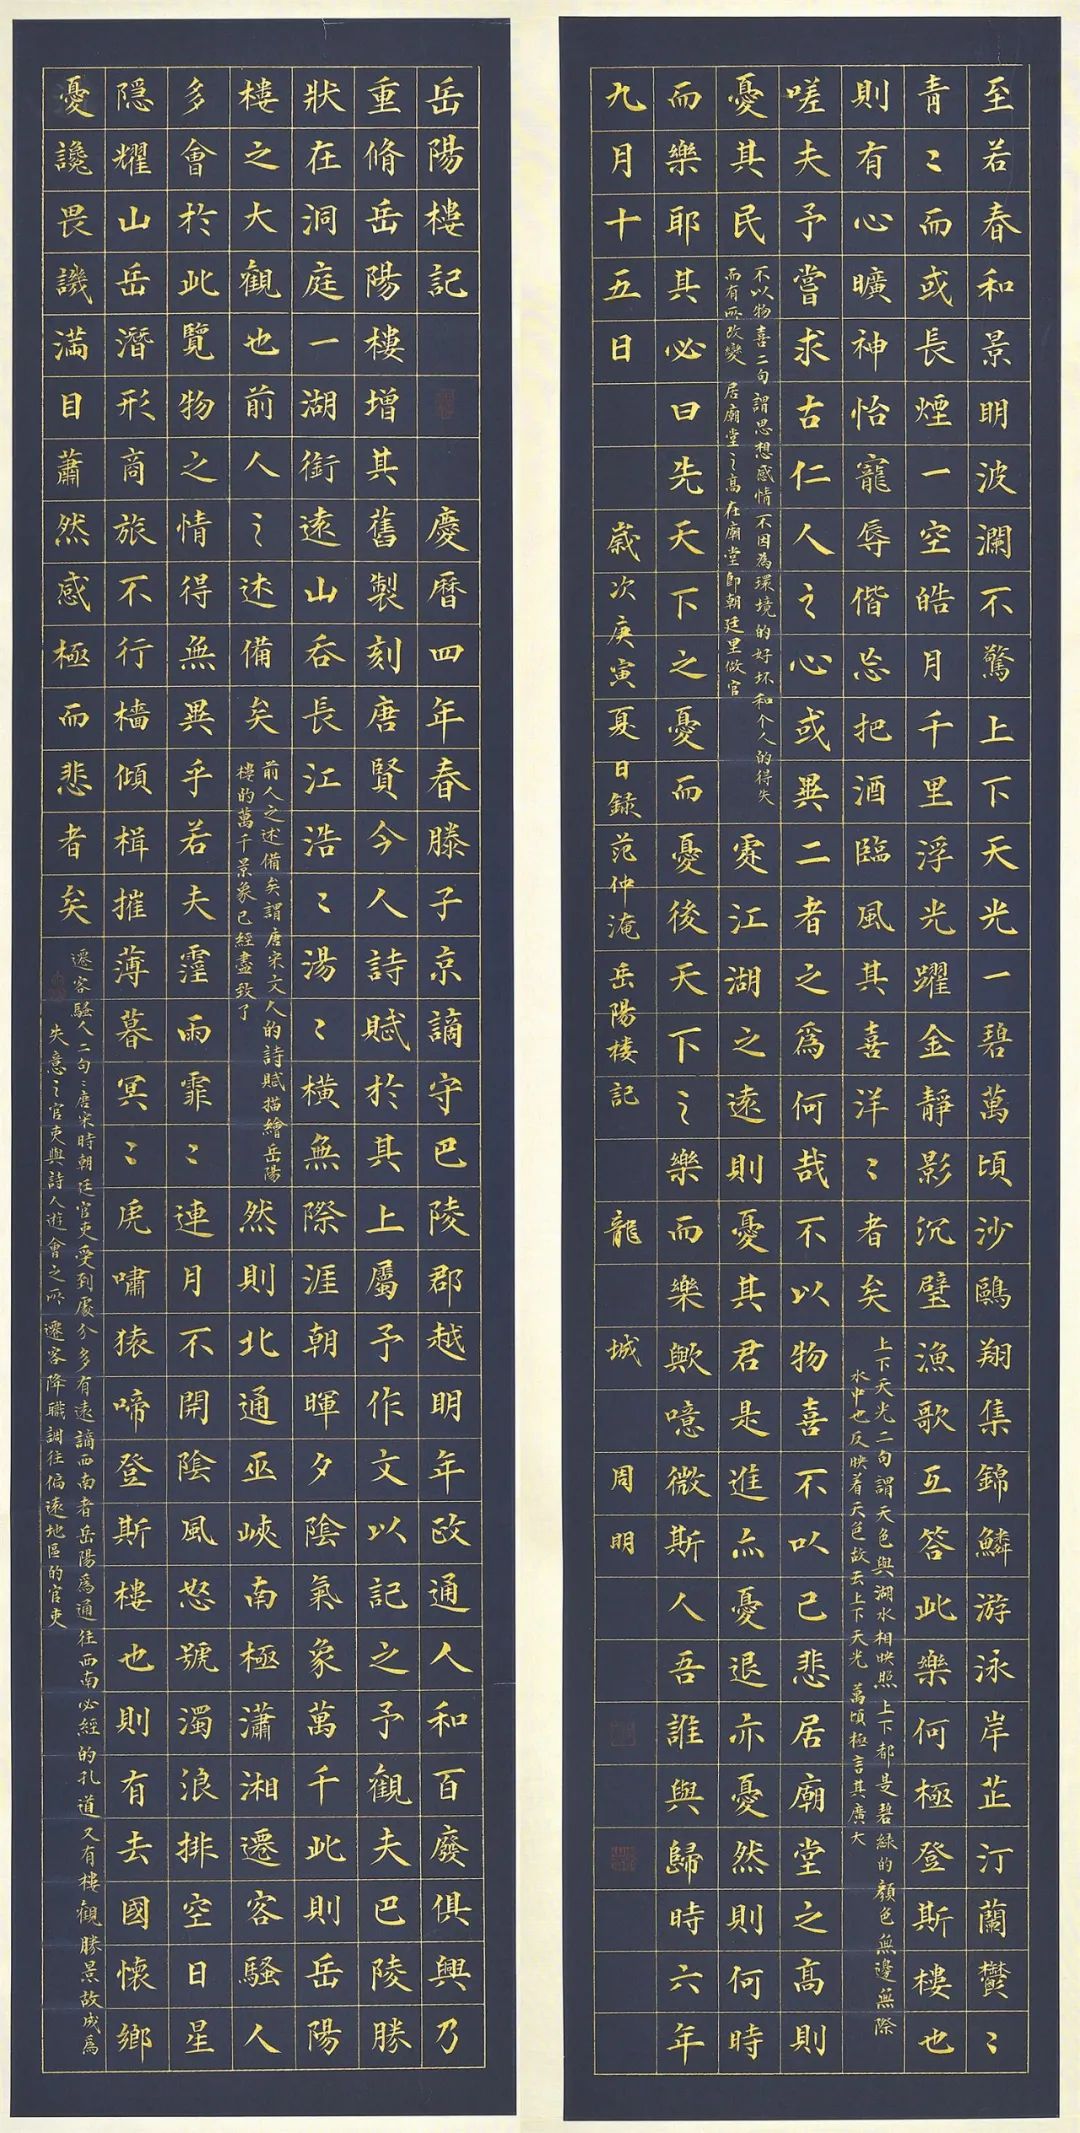 岳陽樓記 慶曆四年春滕子京謫守巴陵郡越明年政通人和百廢俱興乃
重脩岳陽樓增其舊製刻唐賢今人詩賦於其上屬予作文以記之予觀夫巴陵勝
狀在洞庭一湖銜遠山吞長江浩〻湯〻橫無際涯朝暉夕陰氣象萬千此則岳陽
樓之大觀也前人之述備矣
前人之述備矣謂唐宋文人的詩賦描繪岳陽
樓的萬千景象已經盡致了
然則北通巫峽南極瀟湘遷客騷人
多會於此覽物之情得無異乎若夫霪雨霏〻連月不開陰風怒號濁浪排空日星
隱耀山岳潛形商旅不行檣傾楫摧薄暮冥〻虎嘯猿啼登斯樓也則有去國懷鄉
憂讒畏譏滿目蕭然感極而悲者矣
遷客騷人二句〻唐宋時朝廷官吏受到處分多有遠謫西南者岳陽爲通往西南必經的孔道又有樓觀勝景故成爲
失意之官吏與詩人遊會之所 遷客降職調往偏遠地區的官吏
至若春和景明波瀾不驚上下天光一碧萬頃沙鷗翔集錦鱗游泳岸芷汀蘭鬱〻
青〻而或長煙一空皓月千里浮光躍金靜影沉璧漁歌互答此樂何極登斯樓也
則有心曠神怡寵辱偕忘把酒臨風其喜洋〻者矣
上下天光二句謂天色與湖水相映照上下都是碧綠的顏色無邊無際
水中也反映着天色故云上下天光 萬頃極言其廣大
嗟夫予嘗求古仁人之心或異二者之爲何哉不以物喜不以己悲居廟堂之高則
憂其民
不以物喜二句謂思想感情不因為環境的好坏和个人的得失
而有所改變 居廟堂之高在廟堂即朝廷里做官
處江湖之遠則憂其君是進亦憂退亦憂然則何時
而樂耶其必曰先天下之憂而憂後天下之樂而樂歟噫微斯人吾誰與歸時六年
九月十五日 歲次庚寅夏日錄范仲淹岳陽樓記 龍城周明